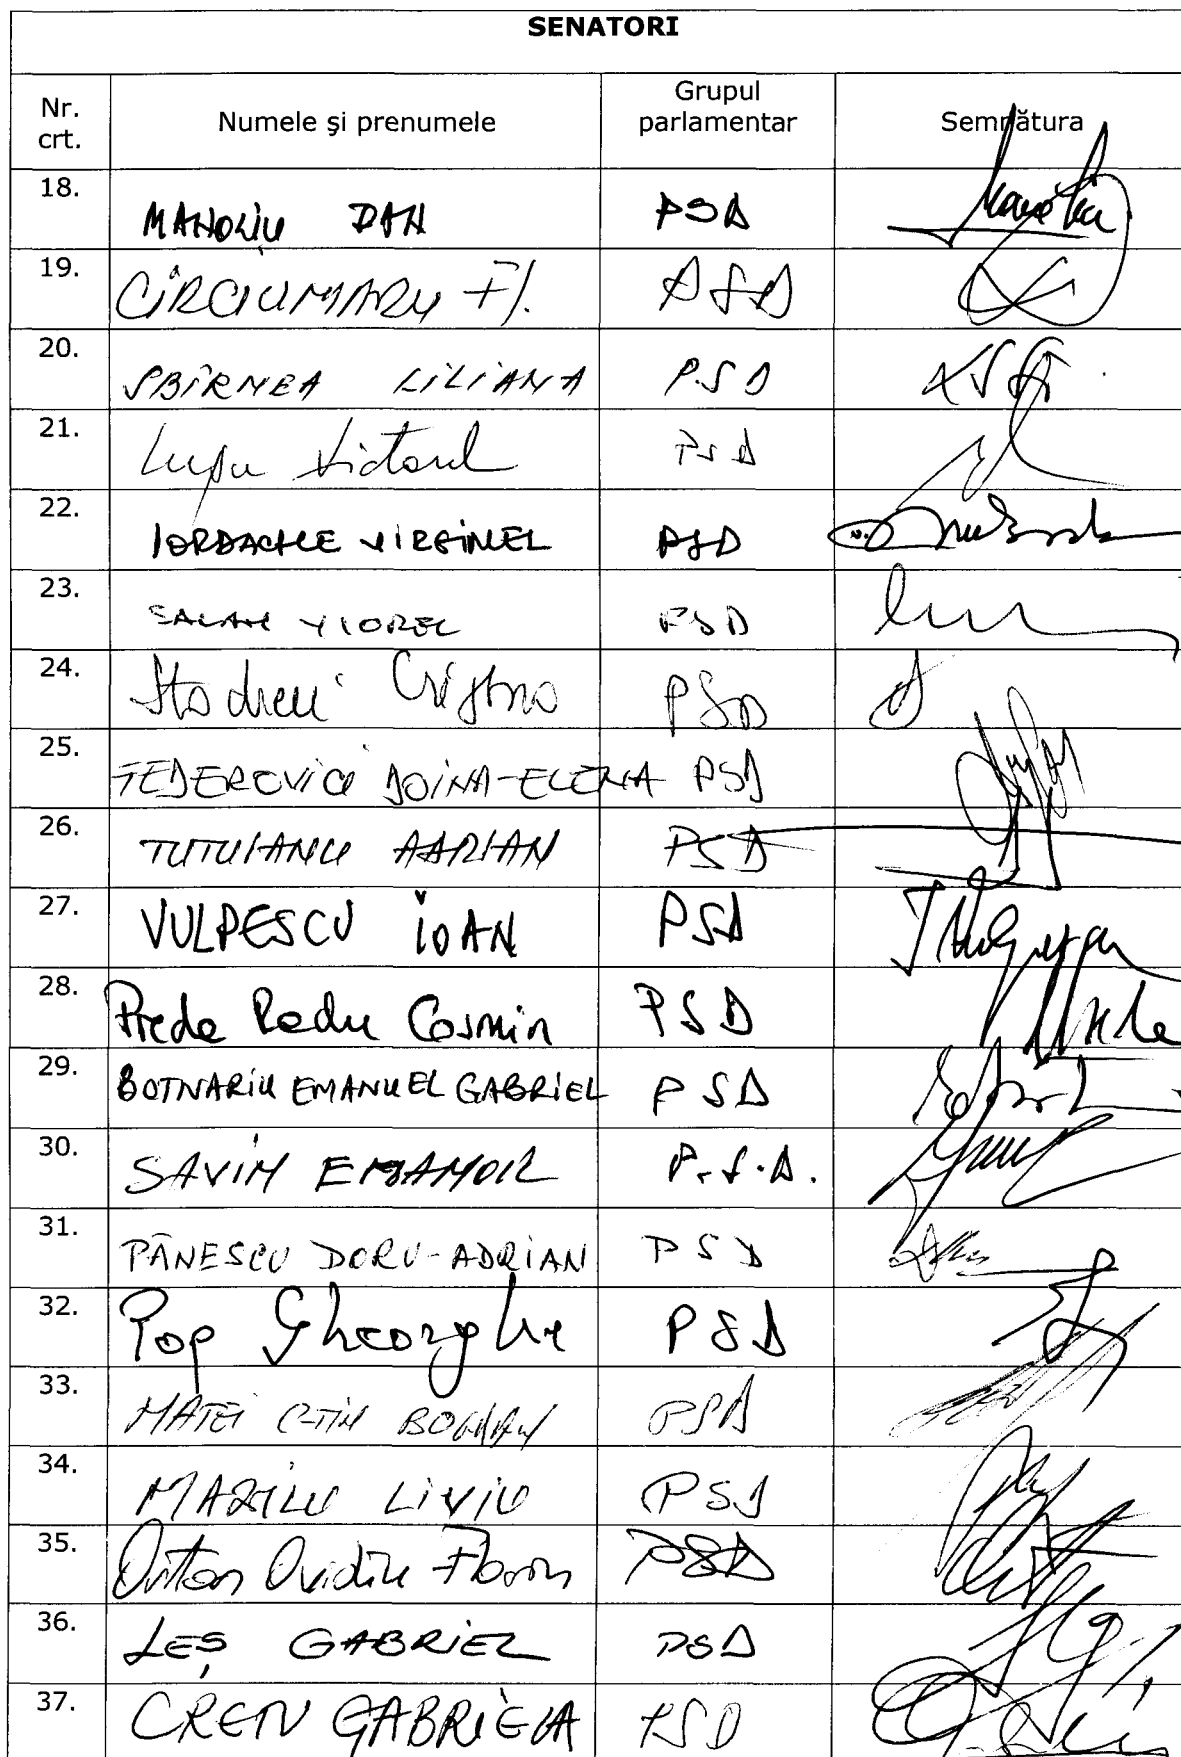 SENATORI
Nr. crt. Numele şi prenumele Grupul parlamentar Semnătura
18. MANOLIU DAN PSD
19. CÎRCIUMARU Fl. PSD
20. SBÎRNEA LILIANA PSD
21. Lupu Victorel PSD
22. IORDACHE VIRGINEL PSD
23. SALAN VIOREL PSD
24. Cristina PSD
25. FEDEROVICI DOINA-ELENA PSD
26. TUTUIANU ADRIAN PSD
27. VULPESCU IOAN PSD
28. Preda Radu Cosmin PSD
29. BOTNARIU EMANUEL GABRIEL PSD
30. SAVIN EMANOIL P.S.D.
31. PĂNESCU DORU-ADRIAN PSD
32. Pop Gheorghe PSD
33. MATEI C-TIN BOGDAN PSD
34. MAZILU LIVIU PSD
35. Ovidiu Florin PSD
36. LEȘ GABRIEL PSD
37. CREȚU GABRIELA PSD